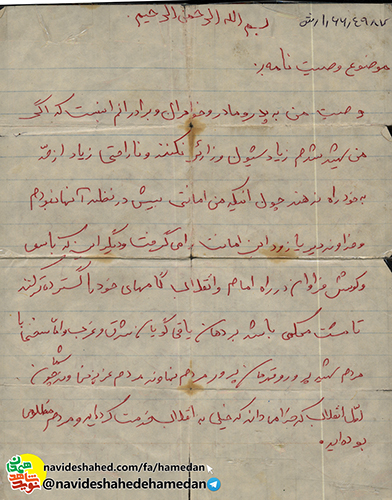 بسم الله الرحمن الرحیم.
موضوع وصیت نامه:
وصیت من به پدر و مادر و خواهران و برادرانم اینست که اگر
من شهید شدم زیاد شیون و زاری نکنند و ناراحتی زیاد از حد
به خود راه ندهند چون اینکه من امانتی بیش در نظر آنها نبودم
و خداوند دیر یا زود این امانت را می گرفت و دیگر این که با سعی
و کوشش فراوان در راه امام و انقلاب گامهای خود را گسترده تر کنند
تا مشت محکمی باشد بر دهان یاوه گویان شرق و غرب و اما سخنم با
مردم شهید پرور و قهرمان پرور مردم نهاوند مردم عزیز
انقلاب که خدا می داند که خیلی به انقلاب خدمت کرده اید و مردم مظلومی
بوده اید.
navideshahed.com/fa/hamedan
@navideshahedehamedan